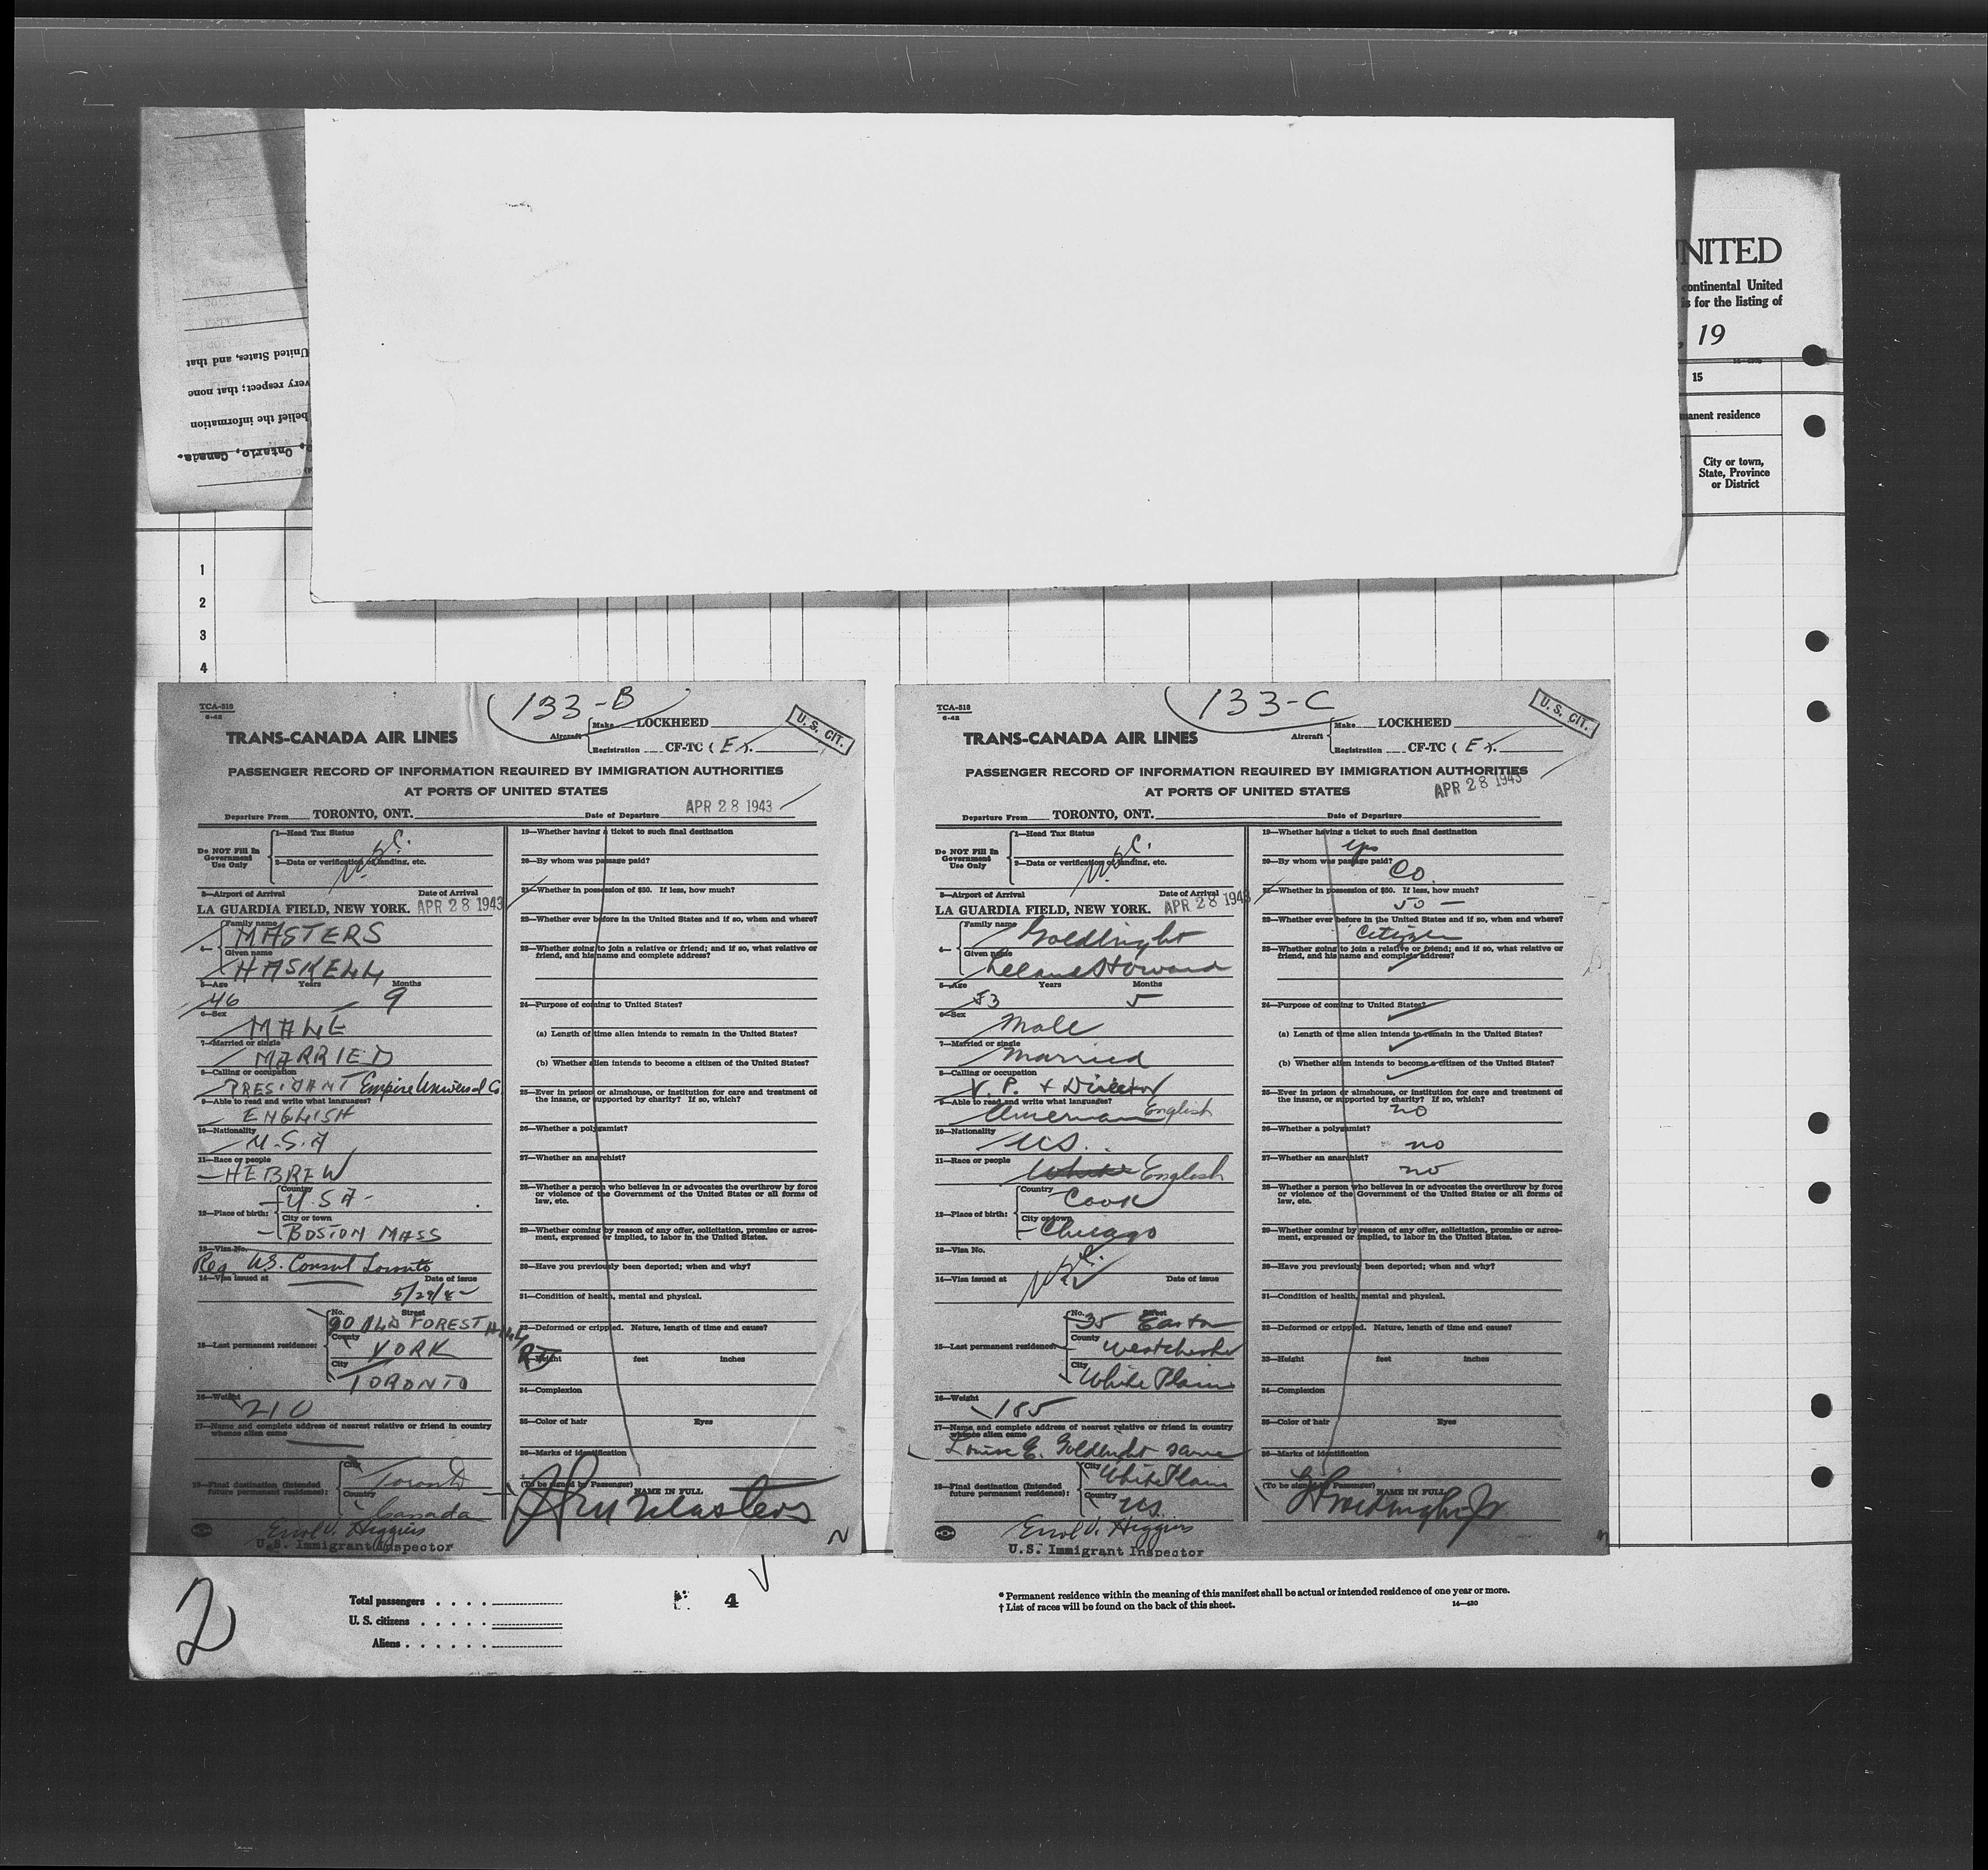 UNITED
continental United
is for the listing of
, 19
15
manent residence
City or town,
State, Province
or District
United States, and that
very respect; that none
belief the information
Ontario, Canada.
1
2
3
4
TCA-518
6-42
133-B
U. S. CIT.
TRANS-CANADA AIR LINES
Aircraft
Make LOCKHEED
Registration CF-TC ( E ).
PASSENGER RECORD OF INFORMATION REQUIRED BY IMMIGRATION AUTHORITIES
AT PORTS OF UNITED STATES
Departure From TORONTO, ONT. Date of Departure APR 28 1943
Do NOT Fill In
Government
Use Only
1—Head Tax Status
2—Data or verification of landing, etc.
3—Airport of Arrival Date of Arrival
LA GUARDIA FIELD, NEW YORK. APR 28 1943
4— Family name
MASTERS
Given name
HASKELL
5—Age Years Months
46 9
6—Sex
MALE
7—Married or single
MARRIED
8—Calling or occupation
PRESIDANT Empire Universal Co.
9—Able to read and write what languages?
ENGLISH
10—Nationality
U.S.A
11—Race or people
HEBREW
12—Place of birth:
Country
U.S.A-
City or town
BOSTON MASS
13—Visa No.
Reg US. Consul Toronto
14—Visa issued at Date of issue
15—Last permanent residence:
No. Street
90 OLD FOREST HILL RD
County
YORK
City
TORONTO
16—Weight
210
17—Name and complete address of nearest relative or friend in country
whence alien came
18—Final destination (Intended
future permanent residence):
City
Toronto
Country
Canada
Errol V. Higgins
U.S. Immigrant Inspector
19—Whether having a ticket to such final destination
20—By whom was passage paid?
21—Whether in possession of $50. If less, how much?
22—Whether ever before in the United States and if so, when and where?
23—Whether going to join a relative or friend; and if so, what relative or
friend, and his name and complete address?
24—Purpose of coming to United States?
(a) Length of time alien intends to remain in the United States?
(b) Whether alien intends to become a citizen of the United States?
25—Ever in prison or almshouse, or institution for care and treatment of
the insane, or supported by charity? If so, which?
26—Whether a polygamist?
27—Whether an anarchist?
28—Whether a person who believes in or advocates the overthrow by force
or violence of the Government of the United States or all forms of
law, etc.
29—Whether coming by reason of any offer, solicitation, promise or agree-
ment, expressed or implied, to labor in the United States.
30—Have you previously been deported; when and why?
31—Condition of health, mental and physical.
32—Deformed or crippled. Nature, length of time and cause?
33—Height feet inches
34—Complexion
35—Color of hair Eyes
36—Marks of identification
(To be signed by Passenger) NAME IN FULL
Masters
TCA-518
6-42
133-C
U. S. CIT.
TRANS-CANADA AIR LINES
Aircraft
Make LOCKHEED
Registration CF-TC ( E ).
PASSENGER RECORD OF INFORMATION REQUIRED BY IMMIGRATION AUTHORITIES
AT PORTS OF UNITED STATES
APR 28 1943
Departure From TORONTO, ONT. Date of Departure
Do NOT Fill In
Government
Use Only
1—Head Tax Status
2—Data or verification of landing, etc.
3—Airport of Arrival Date of Arrival
LA GUARDIA FIELD, NEW YORK. APR 28 1943
4— Family name
Goldbright
Given name
Leland Howard
5—Age Years Months
53 5
6—Sex
Male
7—Married or single
Married
8—Calling or occupation
V. P. + Director
9—Able to read and write what languages?
American English
10—Nationality
US.
11—Race or people
White English
12—Place of birth:
Country
Cook
City or town
Chicago
13—Visa No.
14—Visa issued at Date of issue
15—Last permanent residence:
No. Street
35 Easton
County
Westchester
City
White Plains
16—Weight
185
17—Name and complete address of nearest relative or friend in country
whence alien came
Louise E. Goldbright same
18—Final destination (Intended
future permanent residence):
City
White Plains
Country
US.
Errol V. Higgins
U.S. Immigrant Inspector
19—Whether having a ticket to such final destination
yes
20—By whom was passage paid?
Co.
21—Whether in possession of $50. If less, how much?
50 —
22—Whether ever before in the United States and if so, when and where?
Citizen
23—Whether going to join a relative or friend; and if so, what relative or
friend, and his name and complete address?
24—Purpose of coming to United States?
(a) Length of time alien intends to remain in the United States?
(b) Whether alien intends to become a citizen of the United States?
25—Ever in prison or almshouse, or institution for care and treatment of
the insane, or supported by charity? If so, which?
no
26—Whether a polygamist?
no
27—Whether an anarchist?
no
28—Whether a person who believes in or advocates the overthrow by force
or violence of the Government of the United States or all forms of
law, etc.
29—Whether coming by reason of any offer, solicitation, promise or agree-
ment, expressed or implied, to labor in the United States.
30—Have you previously been deported; when and why?
31—Condition of health, mental and physical.
32—Deformed or crippled. Nature, length of time and cause?
33—Height feet inches
34—Complexion
35—Color of hair Eyes
36—Marks of identification
(To be signed by Passenger) NAME IN FULL
2
Total passengers . . . .
U. S. citizens . . . . .
Aliens . . . . . .
4
* Permanent residence within the meaning of this manifest shall be actual or intended residence of one year or more.
† List of races will be found on the back of this sheet.
14—420